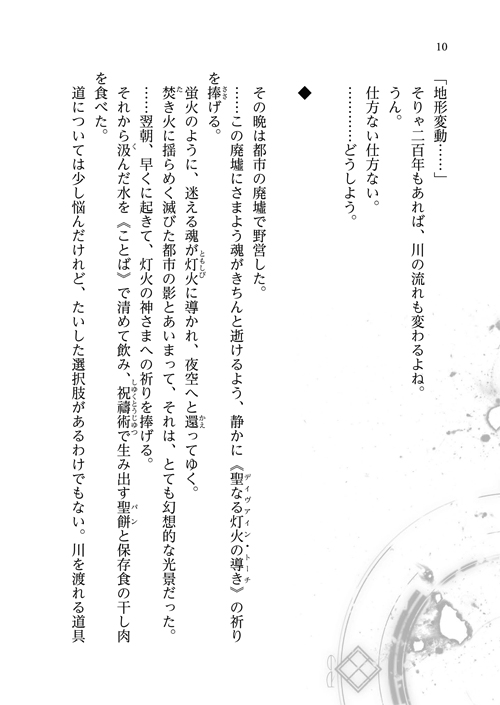 10
「地形変動……」
そりゃ二百年もあれば、川の流れも変わるよね。
うん。
仕方ない仕方ない。
…………どうしよう。
◆
その晩は都市の廃墟で野営した。
……この廃墟にさまよう魂がきちんと逝けるよう、静かに《聖なる灯火の導き》の祈り
を捧げる。
蛍火のように、迷える魂が灯火に導かれ、夜空へと還ってゆく。
焚き火に揺らめく滅びた都市の影とあいまって、それは、とても幻想的な光景だった。
……翌朝、早くに起きて、灯火の神さまへの祈りを捧げる。
それから汲んだ水を《ことば》で清めて飲み、祝禱術で生み出す聖餅と保存食の干し肉
を食べた。
道については少し悩んだけれど、たいした選択肢があるわけでもない。川を渡れる道具